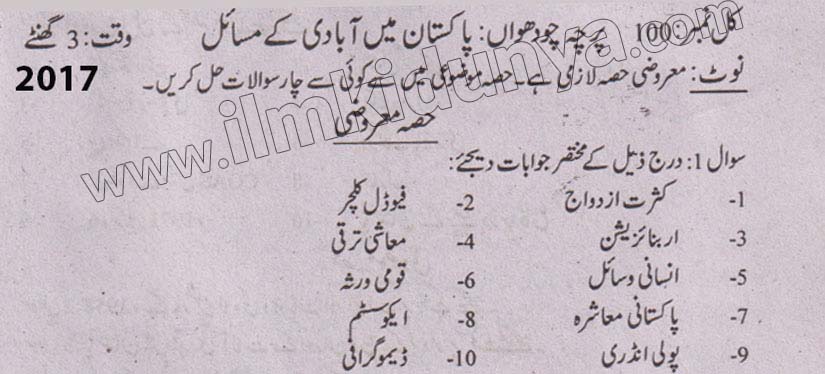 کل نمبر: 100 پرچہ چودھواں: پاکستان میں آبادی کے مسائل وقت: 3 گھنٹے
2017
نوٹ: معروضی حصہ لازمی ہے۔ حصہ موضوعی میں سے کوئی سے چار سوالات حل کریں۔
حصہ معروضی
www.ilmkidunya.com
سوال 1: درج ذیل کے مختصر جوابات دیجئے:
1- کثرت ازدواج 2- فیوڈل کلچر
3- اربنائزیشن 4- معاشی ترقی
5- انسانی وسائل 6- قومی ورثہ
7- پاکستانی معاشرہ 8- ایکوسسٹم
9- پولی انڈری 10- ڈیموگرافی